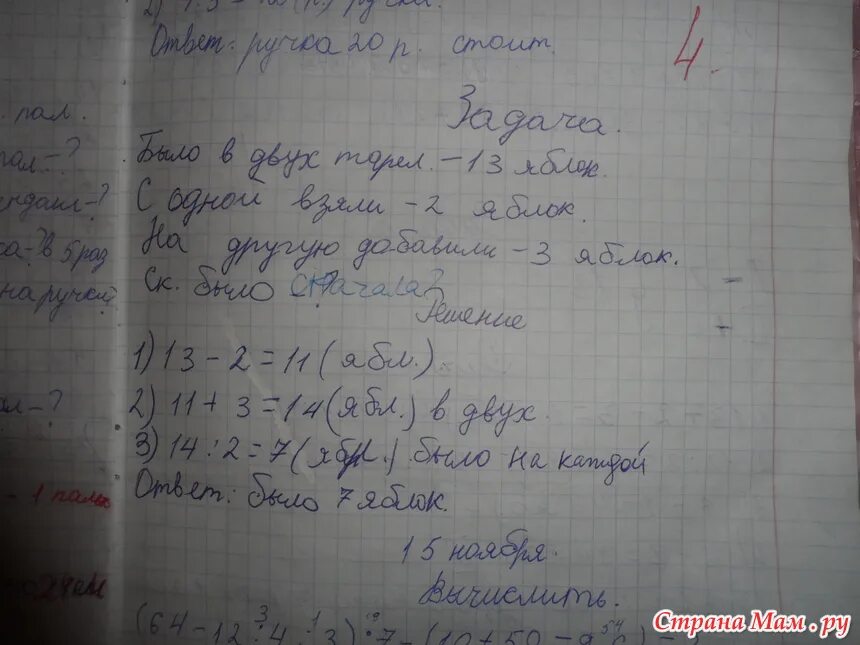 Ответ: ручка 20 р. стоит.
4.
Задача.
Было в двух тарел. – 13 яблок.
С одной взяли – 2 яблок.
На другую добавили – 3 яблок.
Ск. было сначала?
Решение
1) 13 – 2 = 11 (ябл.)
2) 11 + 3 = 14 (ябл.) в двух
3) 14 : 2 = 7 (ябл.) было на каждой
Ответ: было 7 яблок.
15 ноября.
Вычислить.
пал.
в 5 раз
на ручки
– 1 пальто
Страна Мам.ру